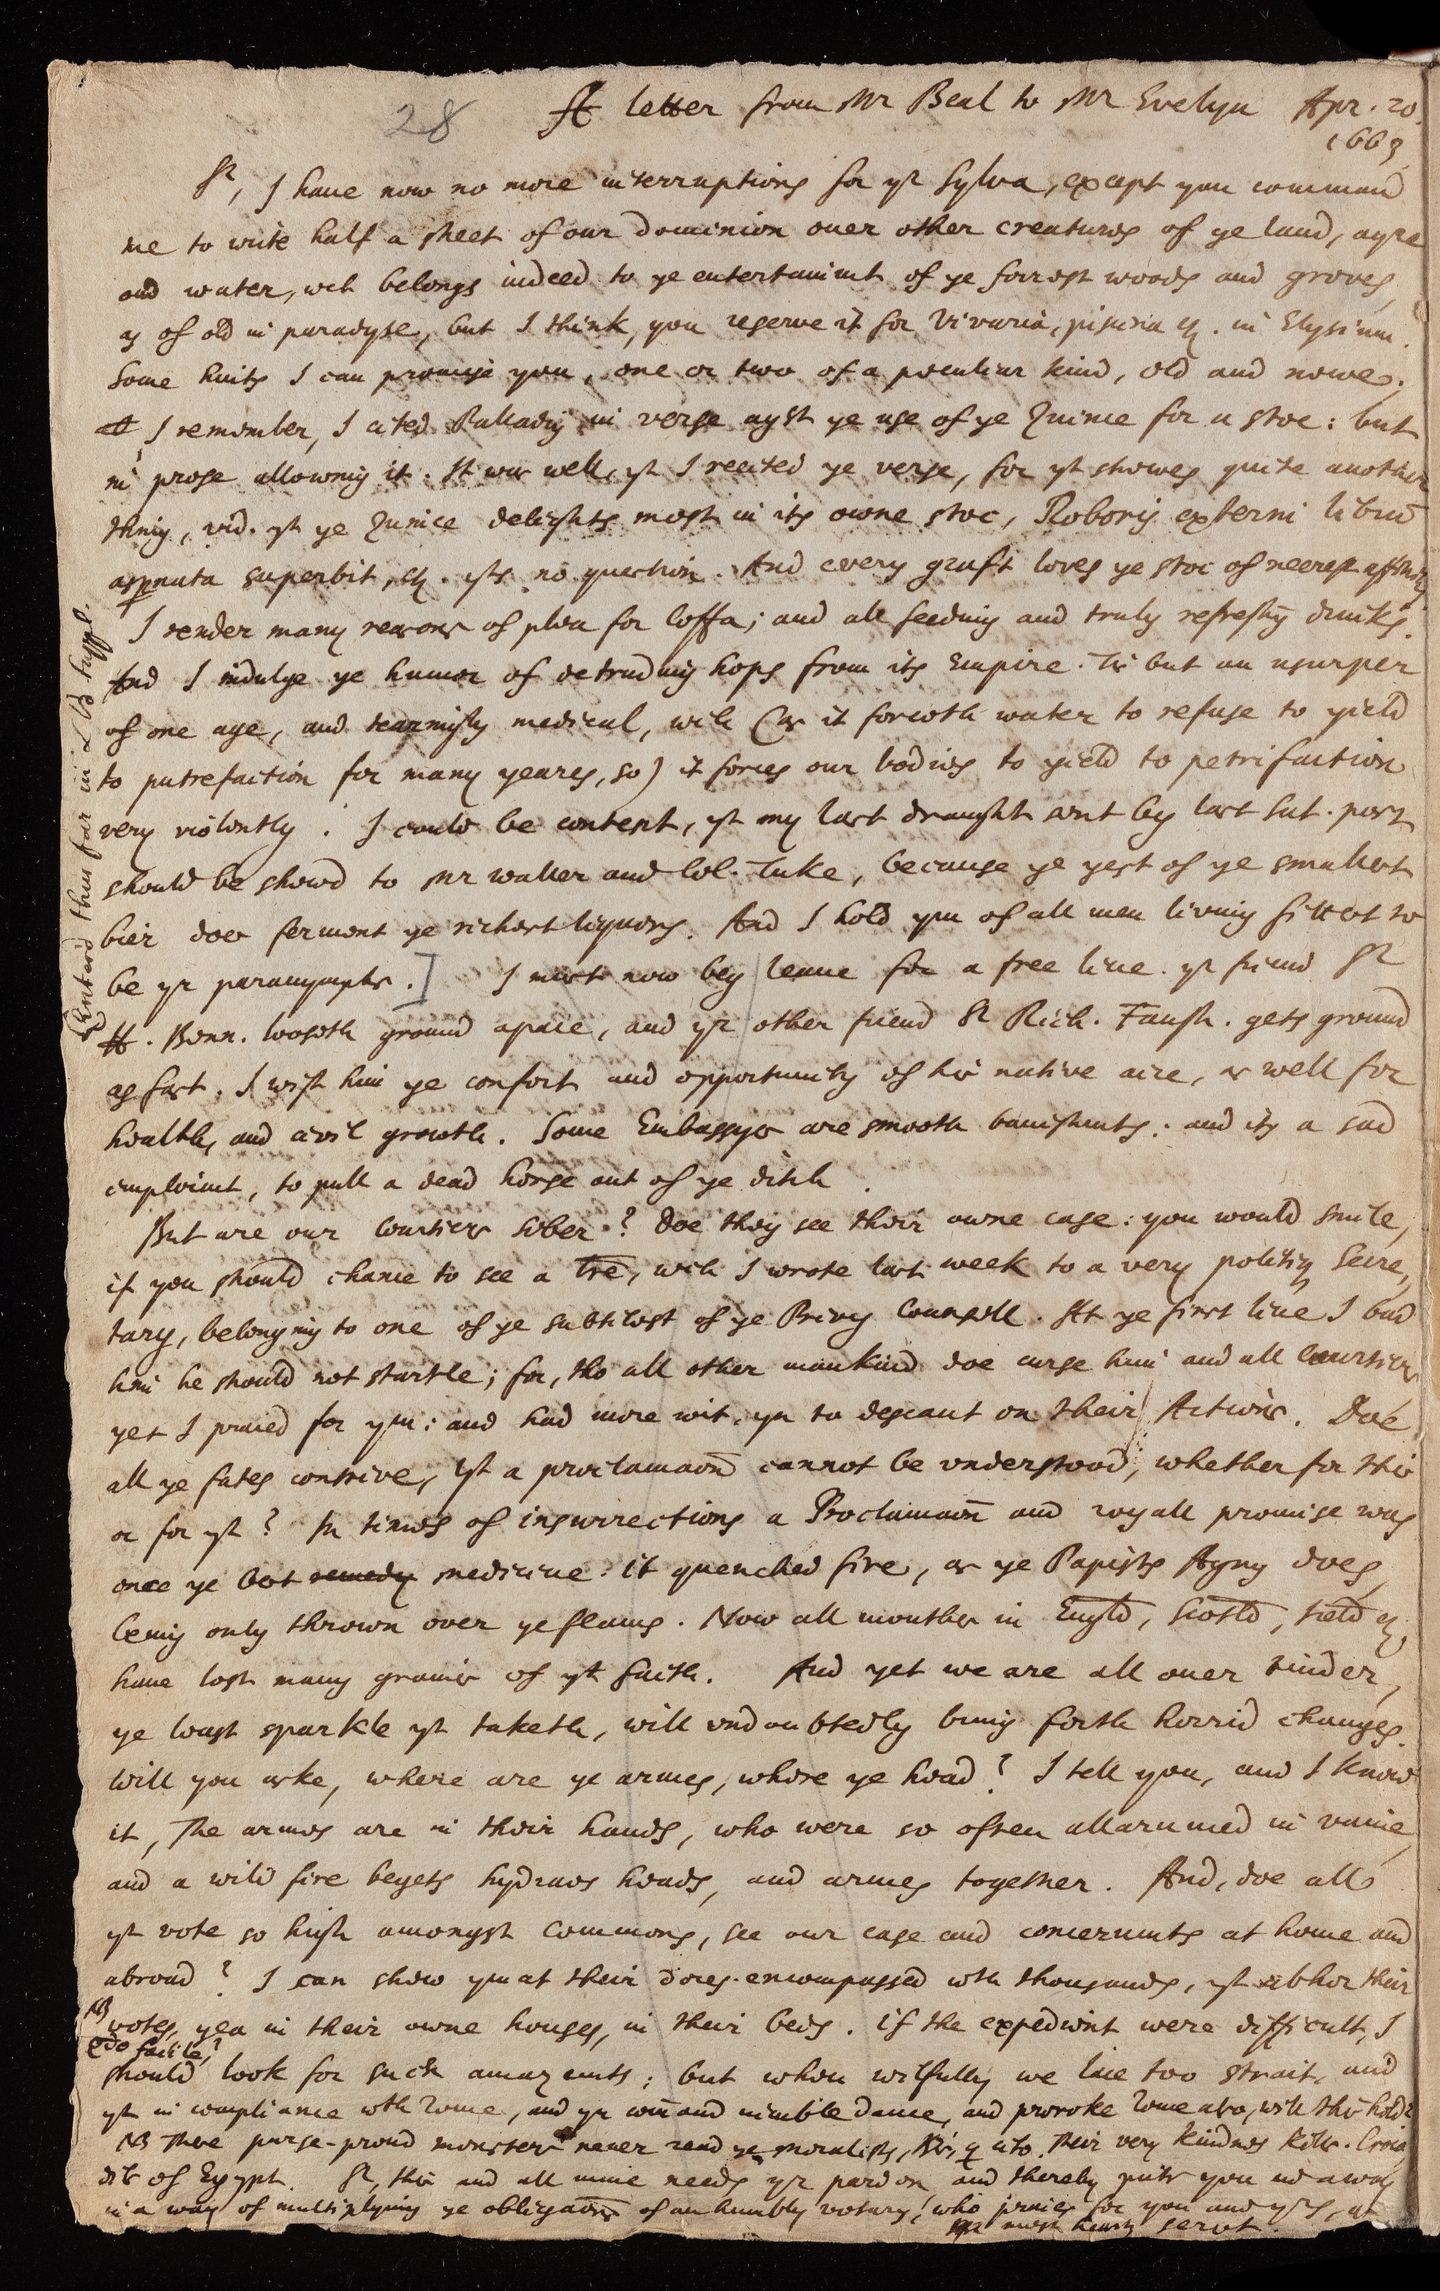 28
A letter from Mr Beal to Mr Evelyn Apr. 20.
1663
Sr, I haue now no more interruptions for yr Sylva, except you command
me to write half a sheet of our Dominion ouer other creatures of ye land, ayre
and water, wch belongs indeed to ye entertainmt of ye forrest woods and groves,
as of old in paradyse, but I think, you reserve it for Vivaria, piscina &c. in Elysium.
Some hints I can promise you, one or two of a peculiar kind, old and newe.
I remember, I cited Palladius in verse agst ye use of ye Quince for a stoc: but
in prose allowing it. It was well, yt I recited ye verse, for yt showes quite another
thing, vid. yt ye Quince delights most in its owne stoc, Roboris externi librũ
aspernata superbit, &c. yts no question. And every graft loves ye stoc of neerest affinity.
I render many reasons of plea for Coffa; and all feeding and truly refreshg drinks.
And I indulge ye humor of detruding hops from its Empire. Tis but an usurper
of one age, and seemingly medical, wch (as it forceth water to refuse to yield
to putrefaction for many yeares, so) it forces our bodies to yield to petrifaction
very violently. I could be content, yt my last draught sent by last Sat. post
should be showd to Mr Waller and Col. Tuke, because ye yest of ye smallest
bier doe ferment ye richest liquors. And I hold ym of all men living fittest to
be yr paranymphs.] I must now beg leaue for a free line. yr friend Sr
H. Benn. looseth ground apace, and yr other friend Sr Rich. Fansh. gets ground
as fast. I wish him ye confort and opportunity of his native aire, as well for
health, and civil growth. Some Embassyes are smooth banishmts: and its a sad
emploimt, to pull a dead horse out of ye ditch.
But are our Courtiers sober? Doe they see their owne case: you would smile,
if you should chance to see a tre, wch I wrote last week to a very politiq Secre,
tary, belonging to one of ye subtilest of ye Privy Counsell. At ye first line I bad
him he should not startle; for, tho all other mankind doe curse him and all Courtiers
yet I praied for ym: and had more wit, yn to descant on their Actions. Doe
all ye fates contrive, yt a proclamaõn cannot be vnderstood, whether for this
or for yt? In times of insurrections a Proclamaõn and royall promise was
once ye best remedy medicine. it quenched fire, as ye Papists Agny does,
being only thrown over ye flams. Now all mouths in Engld, Scotld, Ireld &c
haue lost many grains of yt faith. And yet we are all ouer tinder,
ye least sparkle yt taketh, will vndoubtedly bring forth horrid changes.
Will you aske, where are ye armes, where ye head? I tell you, and I know
it, The armes are in their hands, who were so often allarumed in vaine,
and a wild fire begets hydraes heads, and armes together. And, doe all
yt vote so high amongst Commons, see our case and concernmts at home and
abroad? I can show ym at their dores encompassed wth thousands, yt abhor their
votes, yea in their owne houses, in their beds. If the expedient were difficult, I
should look for such amazemts: but when wilfully we lace too strait, and
yt in compliance wth some, and yr and nimble Dance, and provoke some also, will this hold?
NB These purse-proud monsters never read ye moralists, Their very kindnes kills. Croco
dils of Egypt. Sr, this and all mine needs yr pardon, and thereby puts you
in a way of multiplying ye obligaõns of an humble votary, who praies for you and yrs, as
yr most humb servt.
NB
Quo facile,?
Enterd thus far in L.B. suppl.